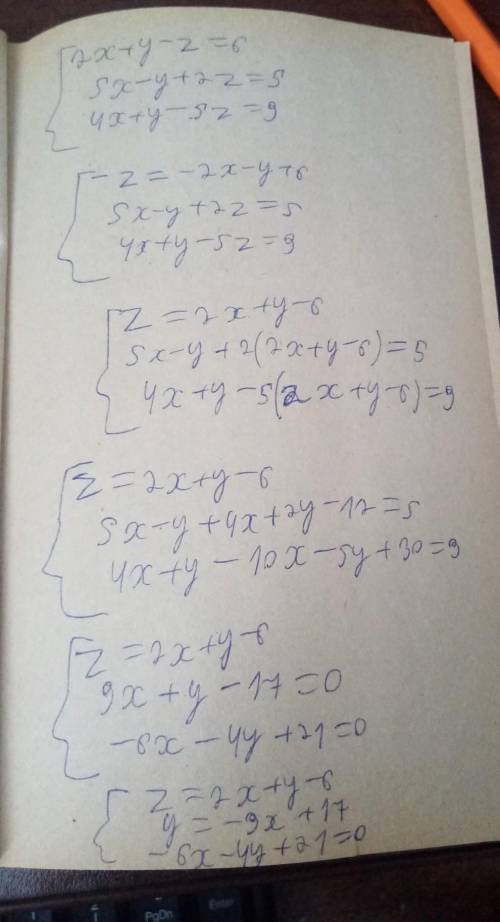 2x+y-z=6
5x-y+2z=5
4x+y-5z=9
-z=-2x-y+6
5x-y+2z=5
4x+y-5z=9
z=2x+y-6
5x-y+2(2x+y-6)=5
4x+y-5(2x+y-6)=9
z=2x+y-6
5x-y+4x+2y-12=5
4x+y-10x-5y+30=9
z=2x+y-6
9x+y-17=0
-6x-4y+21=0
z=2x+y-6
y=-9x+17
-6x-4y+21=0
PgDn
Enter